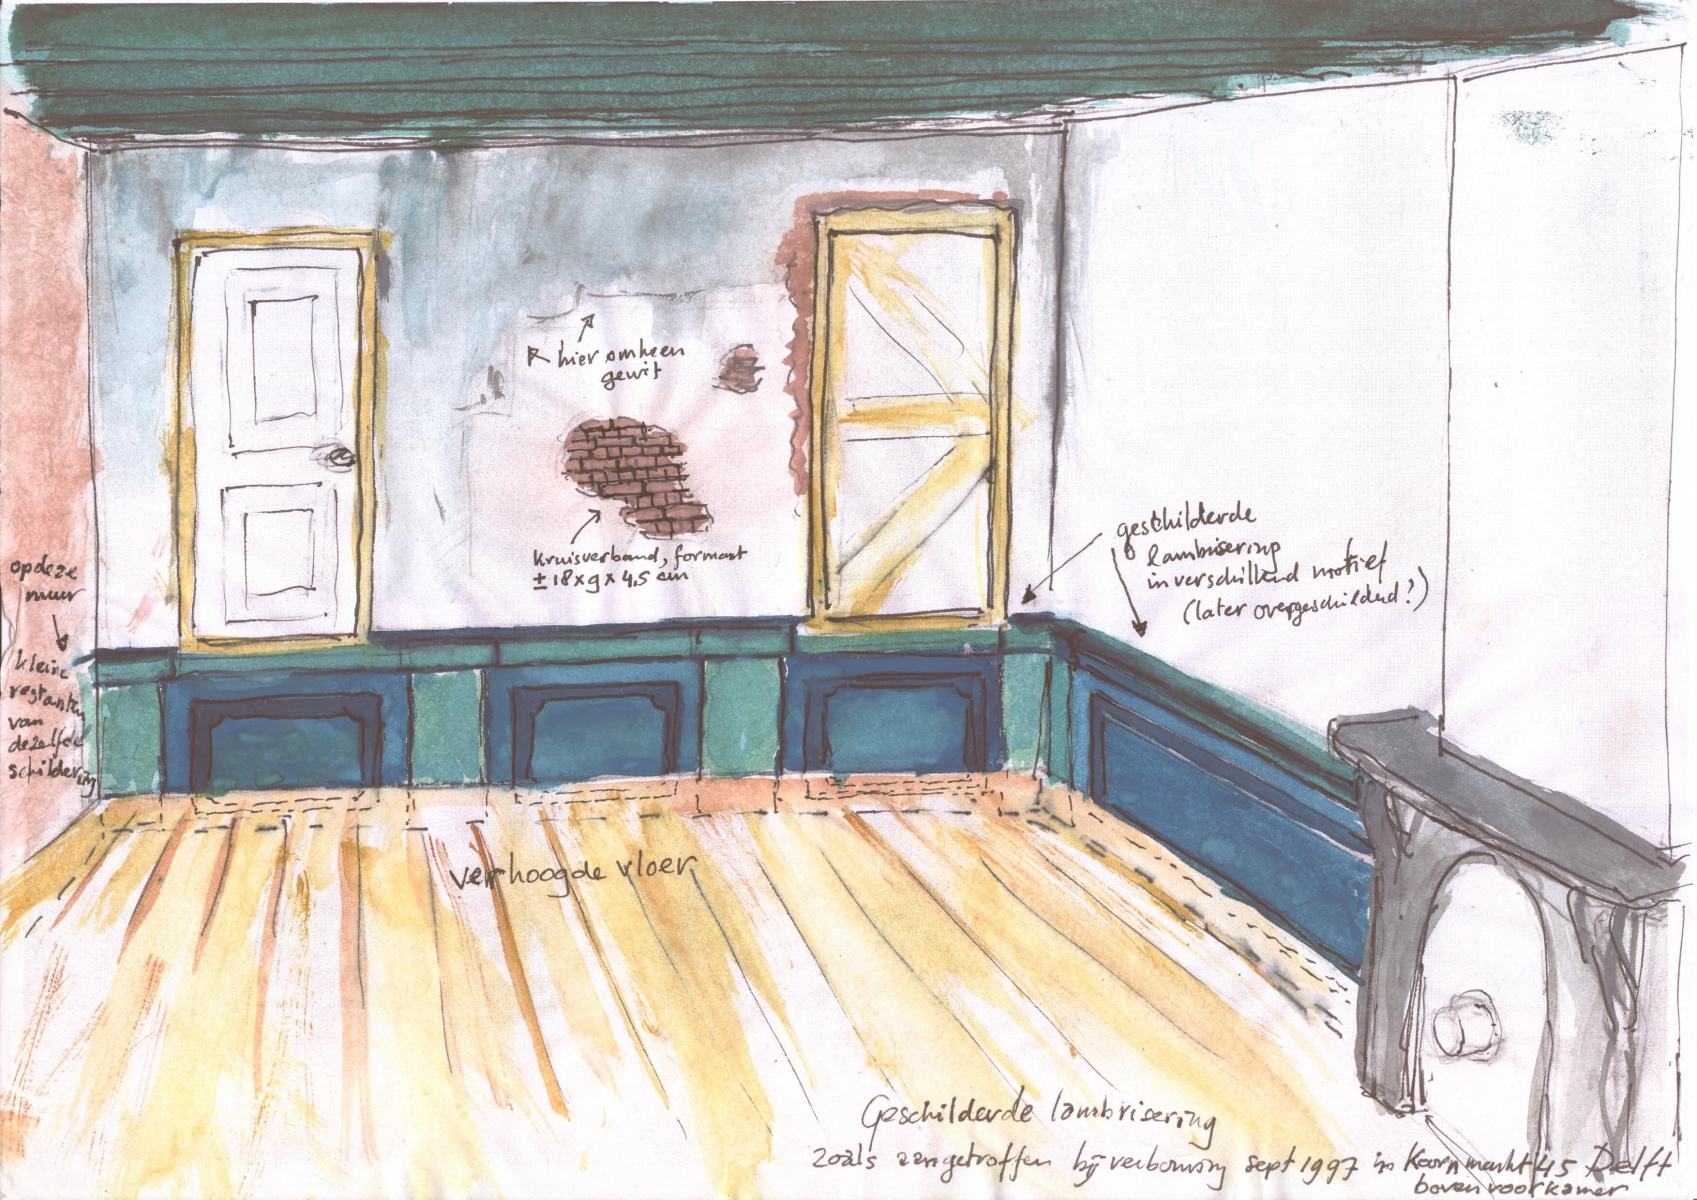 hier omheen
gewit
kruisverband, formaat
± 18 x 9 x 4,5 cm
geschilderde
lambrisering
in verschillend motief
(later overgeschilderd?)
op deze
muur
kleine
restanten
van
dezelfde
schildering
verhoogde vloer
Geschilderde lambrisering
zoals aangetroffen bij verbouwing sept 1997 in Koornmarkt 45 Delft
boven voorkamer